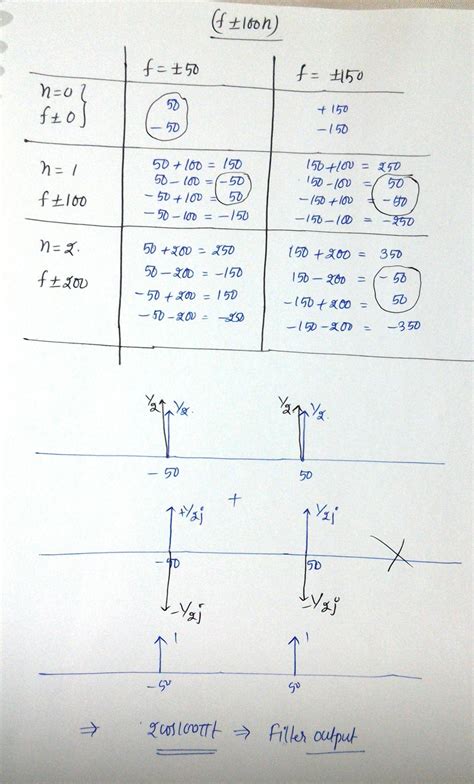 (f±100n)
f = ±50 f = ±150
n=0
f±0
50
-50
+150
-150
n = 1
f±100
50+100 = 150
50-100 = -50
-50+100 = 50
-50-100 = -150
150+100 = 250
150-100 = 50
-150+100 = -50
-150-100 = -250
n = 2.
f±200
50+200 = 250
50-200 = -150
-50+200 = 150
-50-200 = -250
150+200 = 350
150-200 = -50
-150+200 = 50
-150-200 = -350
1/2 1/2. 1/2 1/2.
-50 50
+
+1/2j 1/2j
-50 50
-1/2j -1/2j
1 1
-50 50
⇒ 2cos100πt ⇒ Filter output